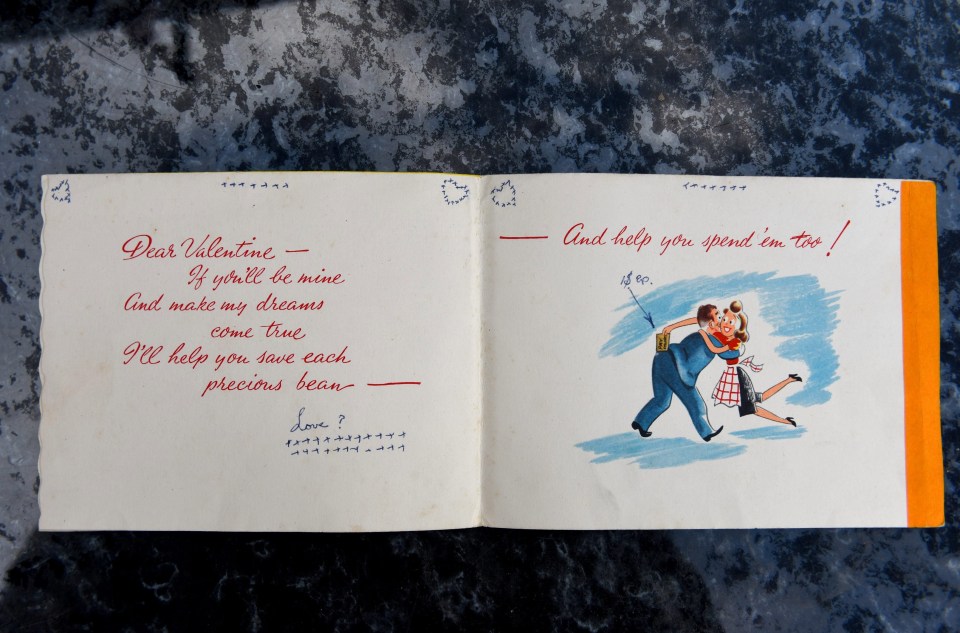 Dear Valentine —
If you'll be mine
And make my dreams
come true
I'll help you save each
precious bean —
Love ?
— And help you spend 'em too!